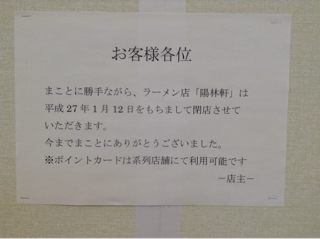 お客様各位
まことに勝手ながら、ラーメン店「陽林軒」は
平成27年1月12日をもちまして閉店させて
いただきます。
今までまことにありがとうございました。
※ポイントカードは系列店舗にて利用可能です
－店主－